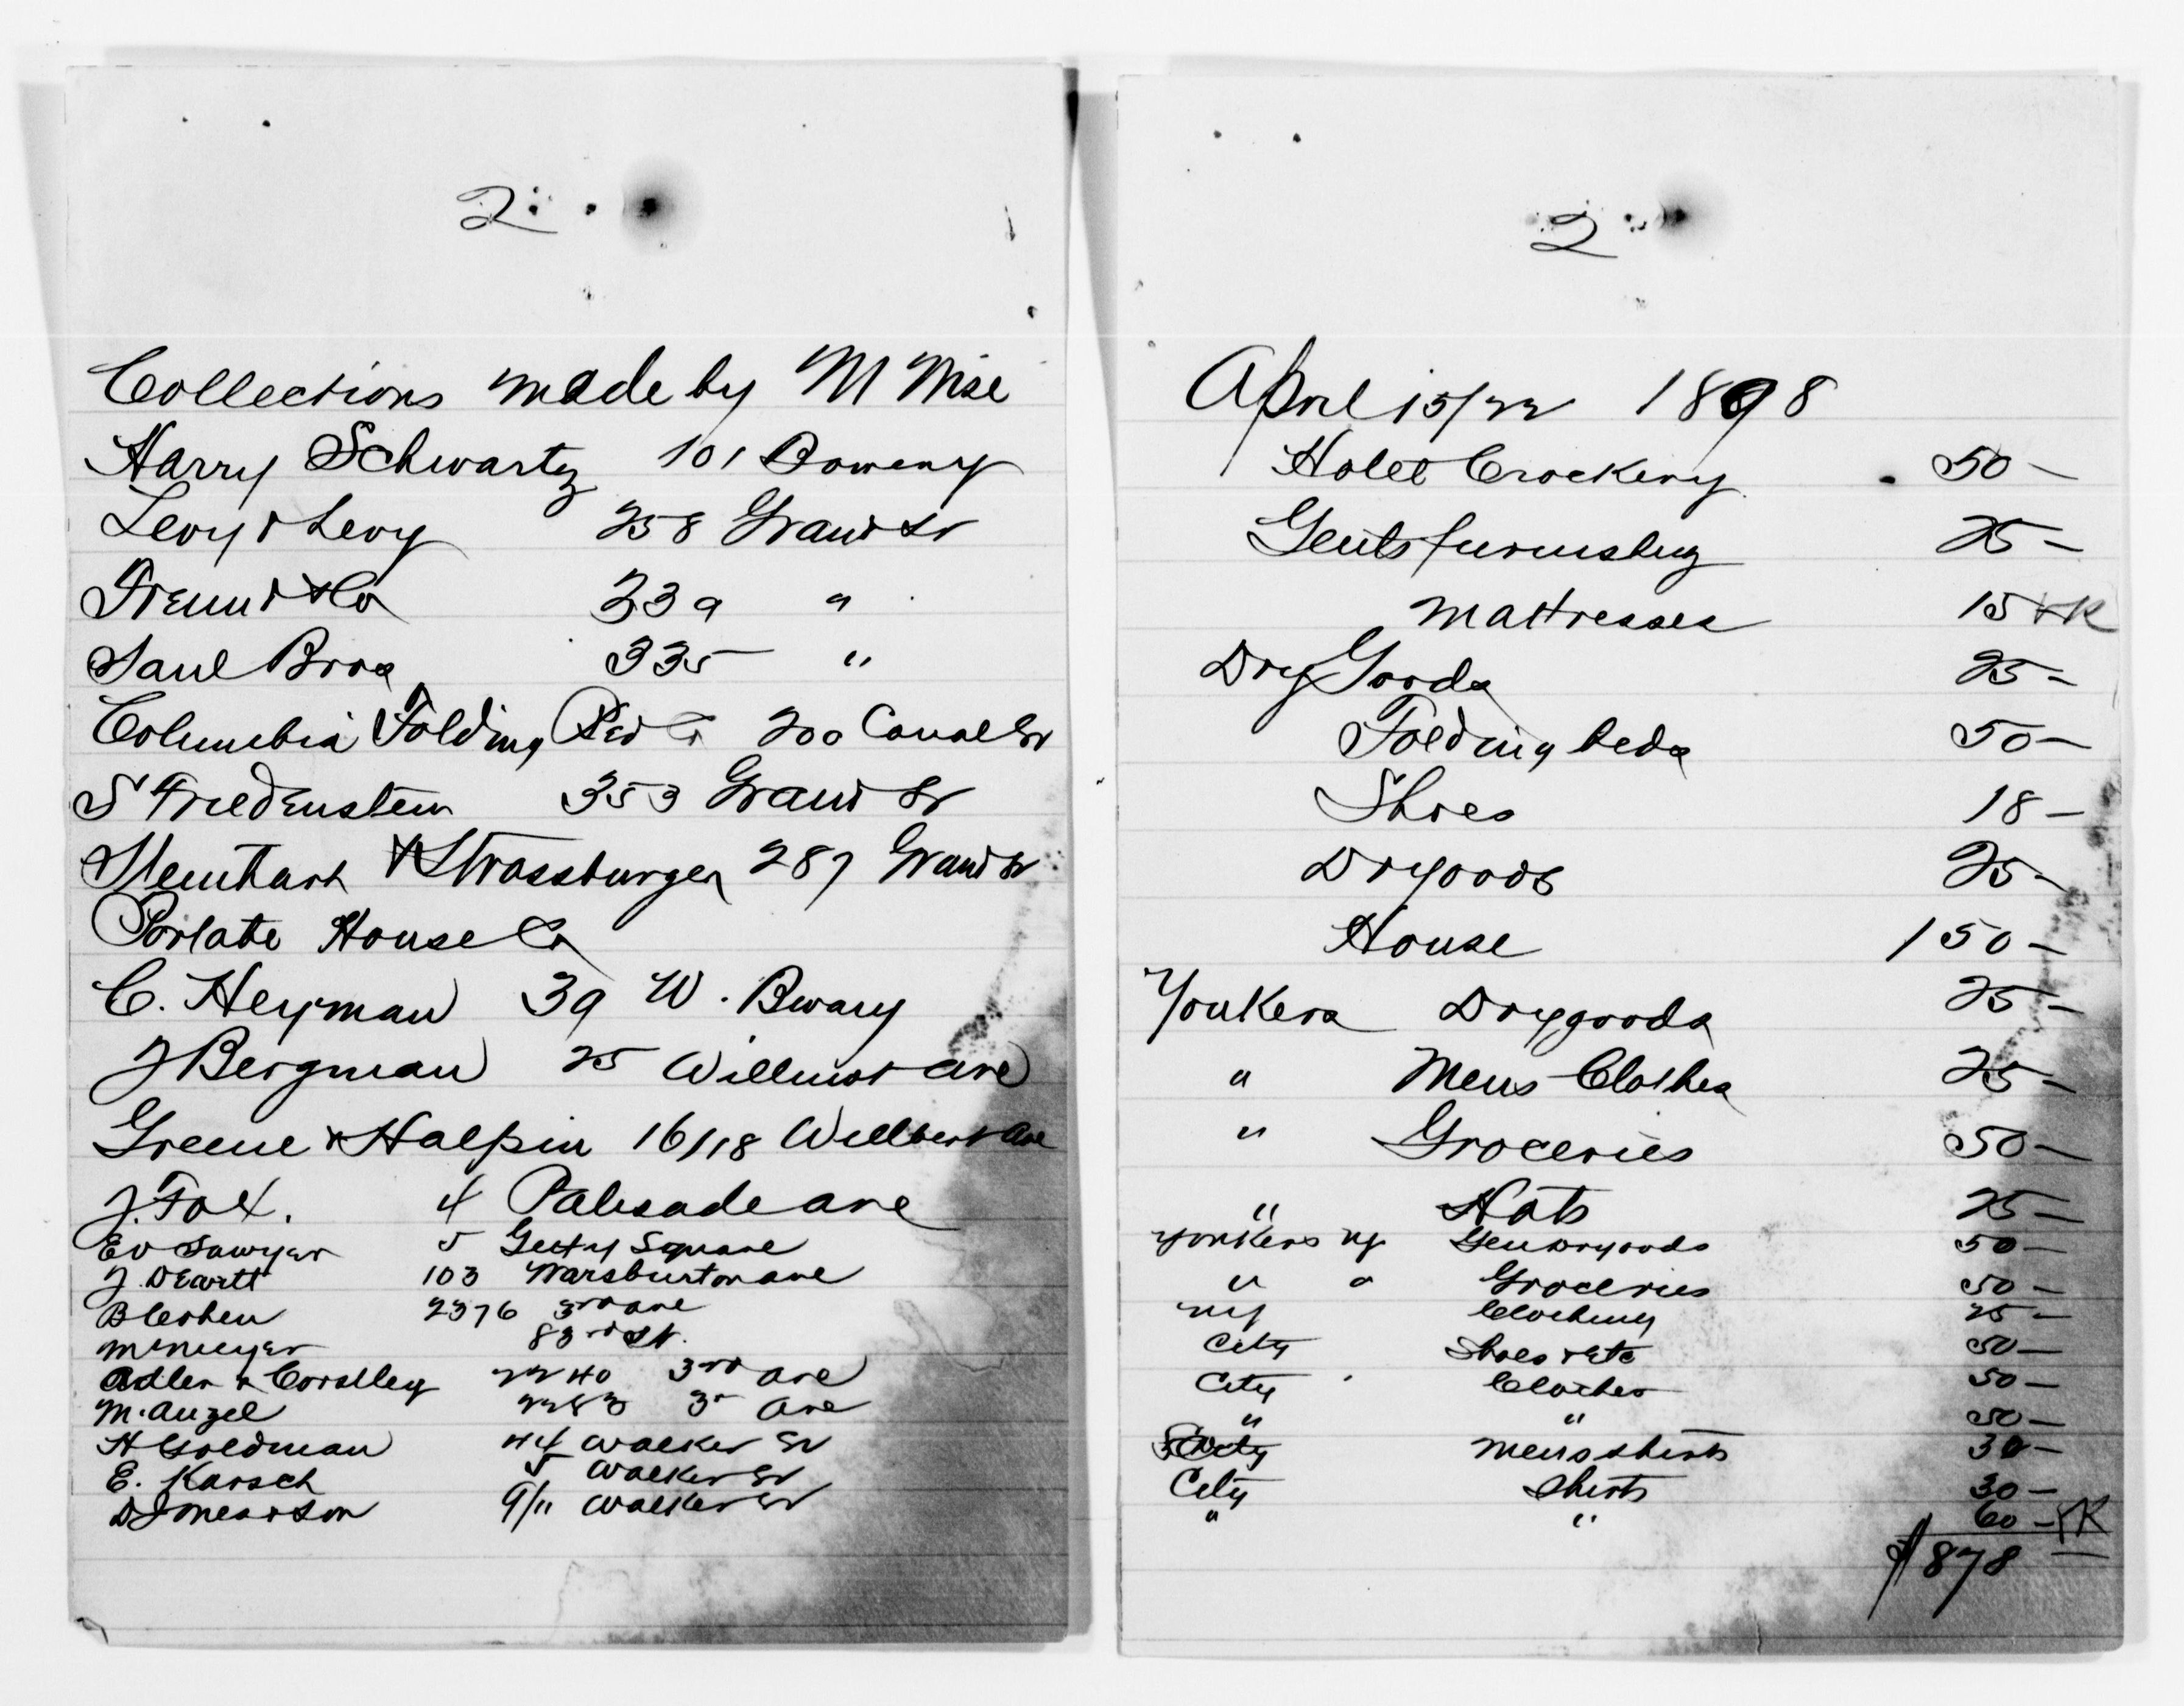 2
Collections made by M Wise
Harry Schwartz 101 Bowery
Levy & Levy 258 Grand St
& Co 339 "
Saul Bros 335 "
Columbia Folding Bed Co 200 Canal St
S Friedenstein 353 Grand St
Steinhart & Strassburger 287 Grand St
Portabe House Co
C. Heyman 39 W. Bway
J Bergman 25 ave
Greene & Halpin 16/18 Ave
J. Fox. 4 Palisade ave
Ed Sawyer 5 Getty Square
J. 103 Warsburton ave
B Cohen 2376 3rd ave
83rd St.
Adler & 2240 3rd ave
M. Angel 3r ave
H Goldman 44 Walker St
E. Karsch 5 Walker St
9/11 Walker St
2
April 15/22 1898
Hotel Crockery 50 —
Gents furnishg 25 —
Mattresses 15
Dry Goods 25 —
Folding beds 50 —
Shoes 18 —
Drygoods 25 —
House 150 —
Yonkers Drygoods 25 —
" Mens Clothes 25 —
" Groceries 50 —
" Hats 25 —
Yonkers NY Gen Drygoods 50 —
" " Groceries 50 —
NY Clothing 25 —
City Shoes & Etc 50 —
City Clothes 50 —
" " 50 —
City Mens Shirts 30 —
City Shirts 30 —
" " 60 —
$878 —